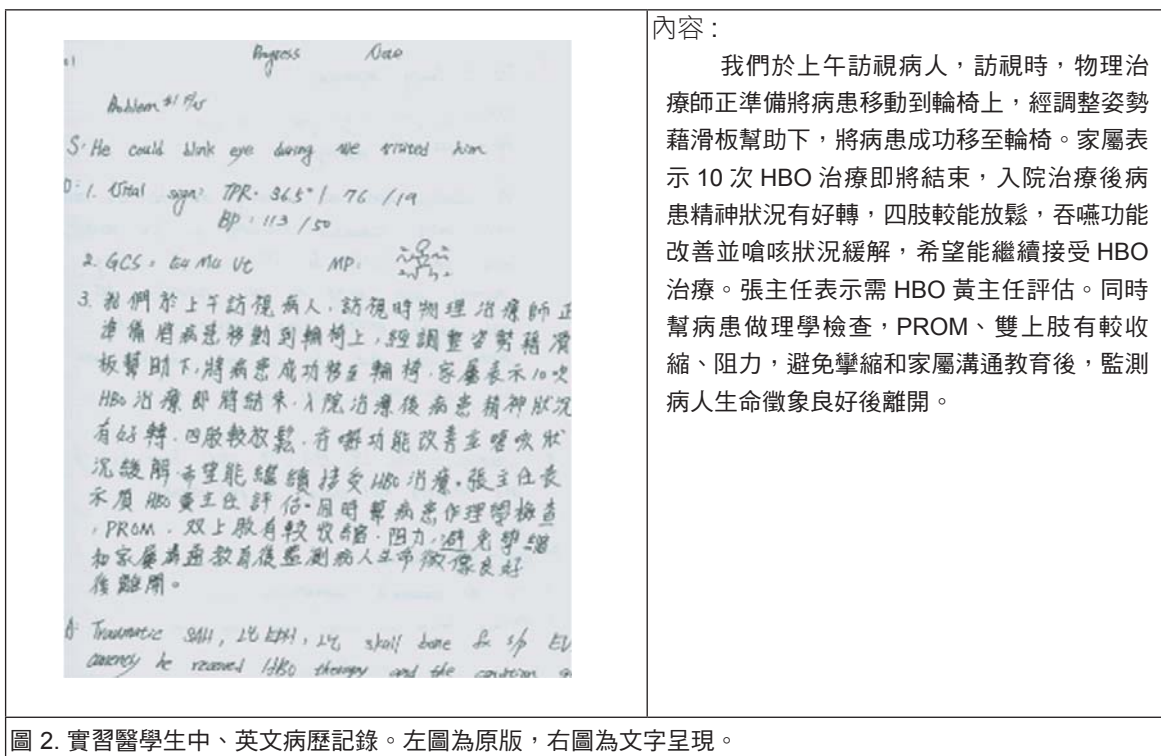 Progress Note
Problem #1
S: He could blink eye during we visited him
O: 1. Vital sign: TPR: 36.5° / 76 / 19
BP: 113 / 50
2. GCS: E4 M4 Vt MP:
3. 我們於上午訪視病人.訪視時物理治療師正
準備將病患移動到輪椅上,經調整姿勢藉滑
板幫助下,將病患成功移至輪椅.家屬表示10次
HBO治療即將結束.入院治療後病患精神狀況
有好轉.四肢較放鬆.吞嚥功能改善並嗆咳狀
況緩解.希望能繼續接受HBO治療.張主任表
示須HBO黃主任評估.同時幫病患作理學檢查
,PROM.双上肢有較收縮.阻力,避免攣縮
和家屬溝通教育後監測病人生命徵像良好
後離開。
A: Traumatic SAH, EDH, skull bone fx s/p EV
he received HBO therapy and the
內容:
我們於上午訪視病人,訪視時,物理治
療師正準備將病患移動到輪椅上,經調整姿勢
藉滑板幫助下,將病患成功移至輪椅。家屬表
示 10 次 HBO 治療即將結束,入院治療後病
患精神狀況有好轉,四肢較能放鬆,吞嚥功能
改善並嗆咳狀況緩解,希望能繼續接受 HBO
治療。張主任表示需 HBO 黃主任評估。同時
幫病患做理學檢查,PROM、雙上肢有較收
縮、阻力,避免攣縮和家屬溝通教育後,監測
病人生命徵象良好後離開。
圖 2. 實習醫學生中、英文病歷記錄。左圖為原版,右圖為文字呈現。